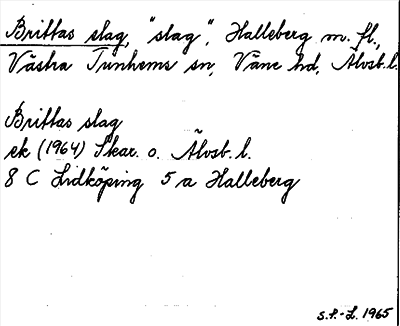 Brittas slag, "slag", Halleberg m. fl.,
Västra Tunhems sn, Väne hd, Älvsb. l.
Brittas slag
ek (1964) Skar. o. Älvsb. l.
8 C Lidköping 5 a Halleberg
S.F.-L. 1965